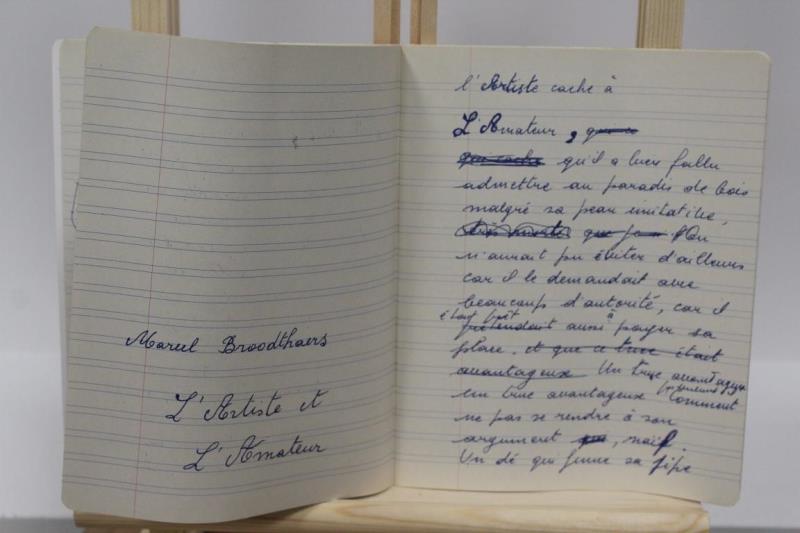 Marcel Broodthaers
L'Artiste et
L'Amateur
l'Artiste cache à
L'Amateur,
qu'il a bien fallu
admettre au paradis de bois
malgré sa peau imitative,
On
n'aurait pu éviter d'ailleurs
car il le demandait avec
beaucoup d'autorité, car il
était prêt à
prétendait aussi payer sa
place, et que ce truc était
avantageux Un truc avantageux
un truc avantageux Comment
ne pas se rendre à son
argument, naïf.
Un dé qui fume sa pipe